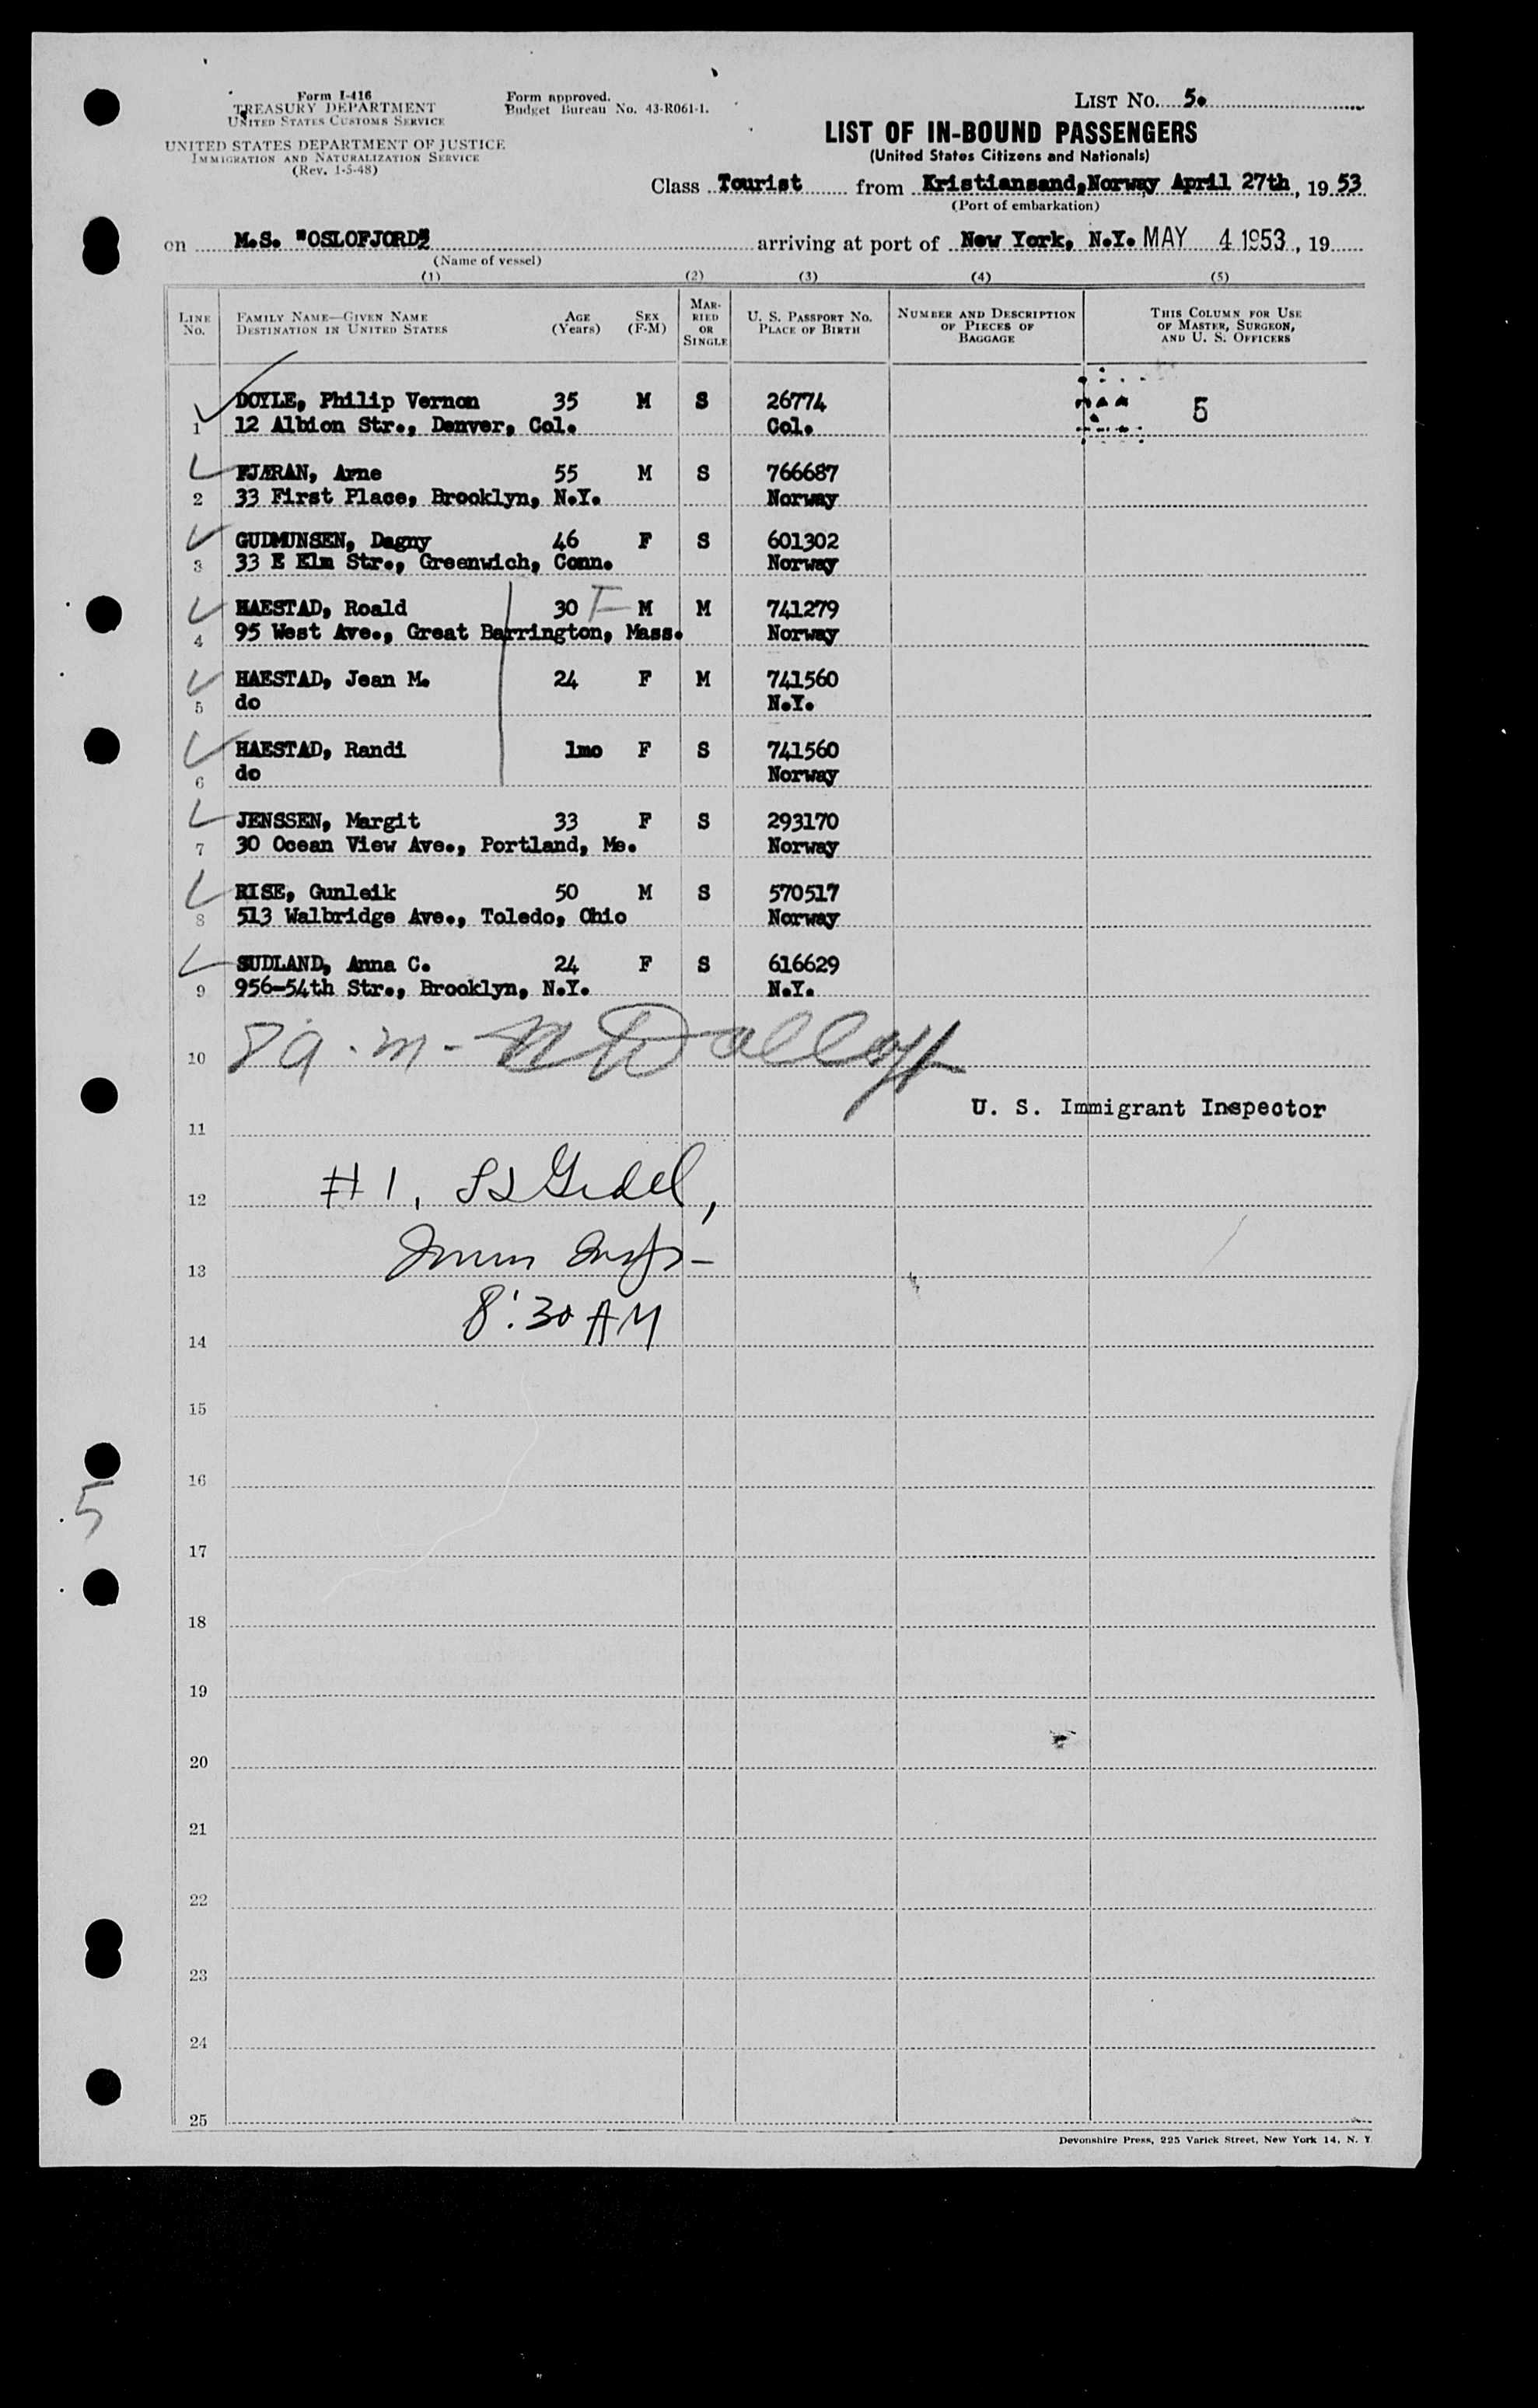 Form I-416
TREASURY DEPARTMENT
UNITED STATES CUSTOMS SERVICE
UNITED STATES DEPARTMENT OF JUSTICE
IMMIGRATION AND NATURALIZATION SERVICE
(Rev. 1-5-48)
Form approved.
Budget Bureau No. 43-R061-1.
LIST NO. 5.
LIST OF IN-BOUND PASSENGERS
(United States Citizens and Nationals)
Class Tourist from Kristiansand, Norway April 27th, 19 53
(Port of embarkation)
on M.S. "OSLOFJORD" arriving at port of New York, N.Y. MAY 4 1953, 19
(Name of vessel)
(1) (2) (3) (4) (5)
LINE NO. FAMILY NAME—GIVEN NAME DESTINATION IN UNITED STATES AGE (Years) SEX (F-M) MARRIED OR SINGLE U. S. PASSPORT NO. PLACE OF BIRTH NUMBER AND DESCRIPTION OF PIECES OF BAGGAGE THIS COLUMN FOR USE OF MASTER, SURGEON, AND U. S. OFFICERS
DOYLE, Philip Vernon 35 M S 26774 5
1 12 Albion Str., Denver, Col. Col.
FJÆRAN, Arne 55 M S 766687
2 33 First Place, Brooklyn, N.Y. Norway
GUDMUNSEN, Dagny 46 F S 601302
3 33 E Elm Str., Greenwich, Conn. Norway
HAESTAD, Roald 30 F M M 741279
4 95 West Ave., Great Barrington, Mass. Norway
HAESTAD, Jean M. 24 F M 741560
5 do N.Y.
HAESTAD, Randi 1mo F S 741560
6 do Norway
JENSSEN, Margit 33 F S 293170
7 30 Ocean View Ave., Portland, Me. Norway
RISE, Gunleik 50 M S 570517
8 513 Walbridge Ave., Toledo, Ohio Norway
SUDLAND, Anna C. 24 F S 616629
9 956-54th Str., Brooklyn, N.Y. N.Y.
10 8 a.m. -
U. S. Immigrant Inspector
11
12 #1,
13 Imm Insp -
8:30 AM
14
15
16
5
17
18
19
20
21
22
23
24
25
Devonshire Press, 225 Varick Street, New York 14, N. Y.